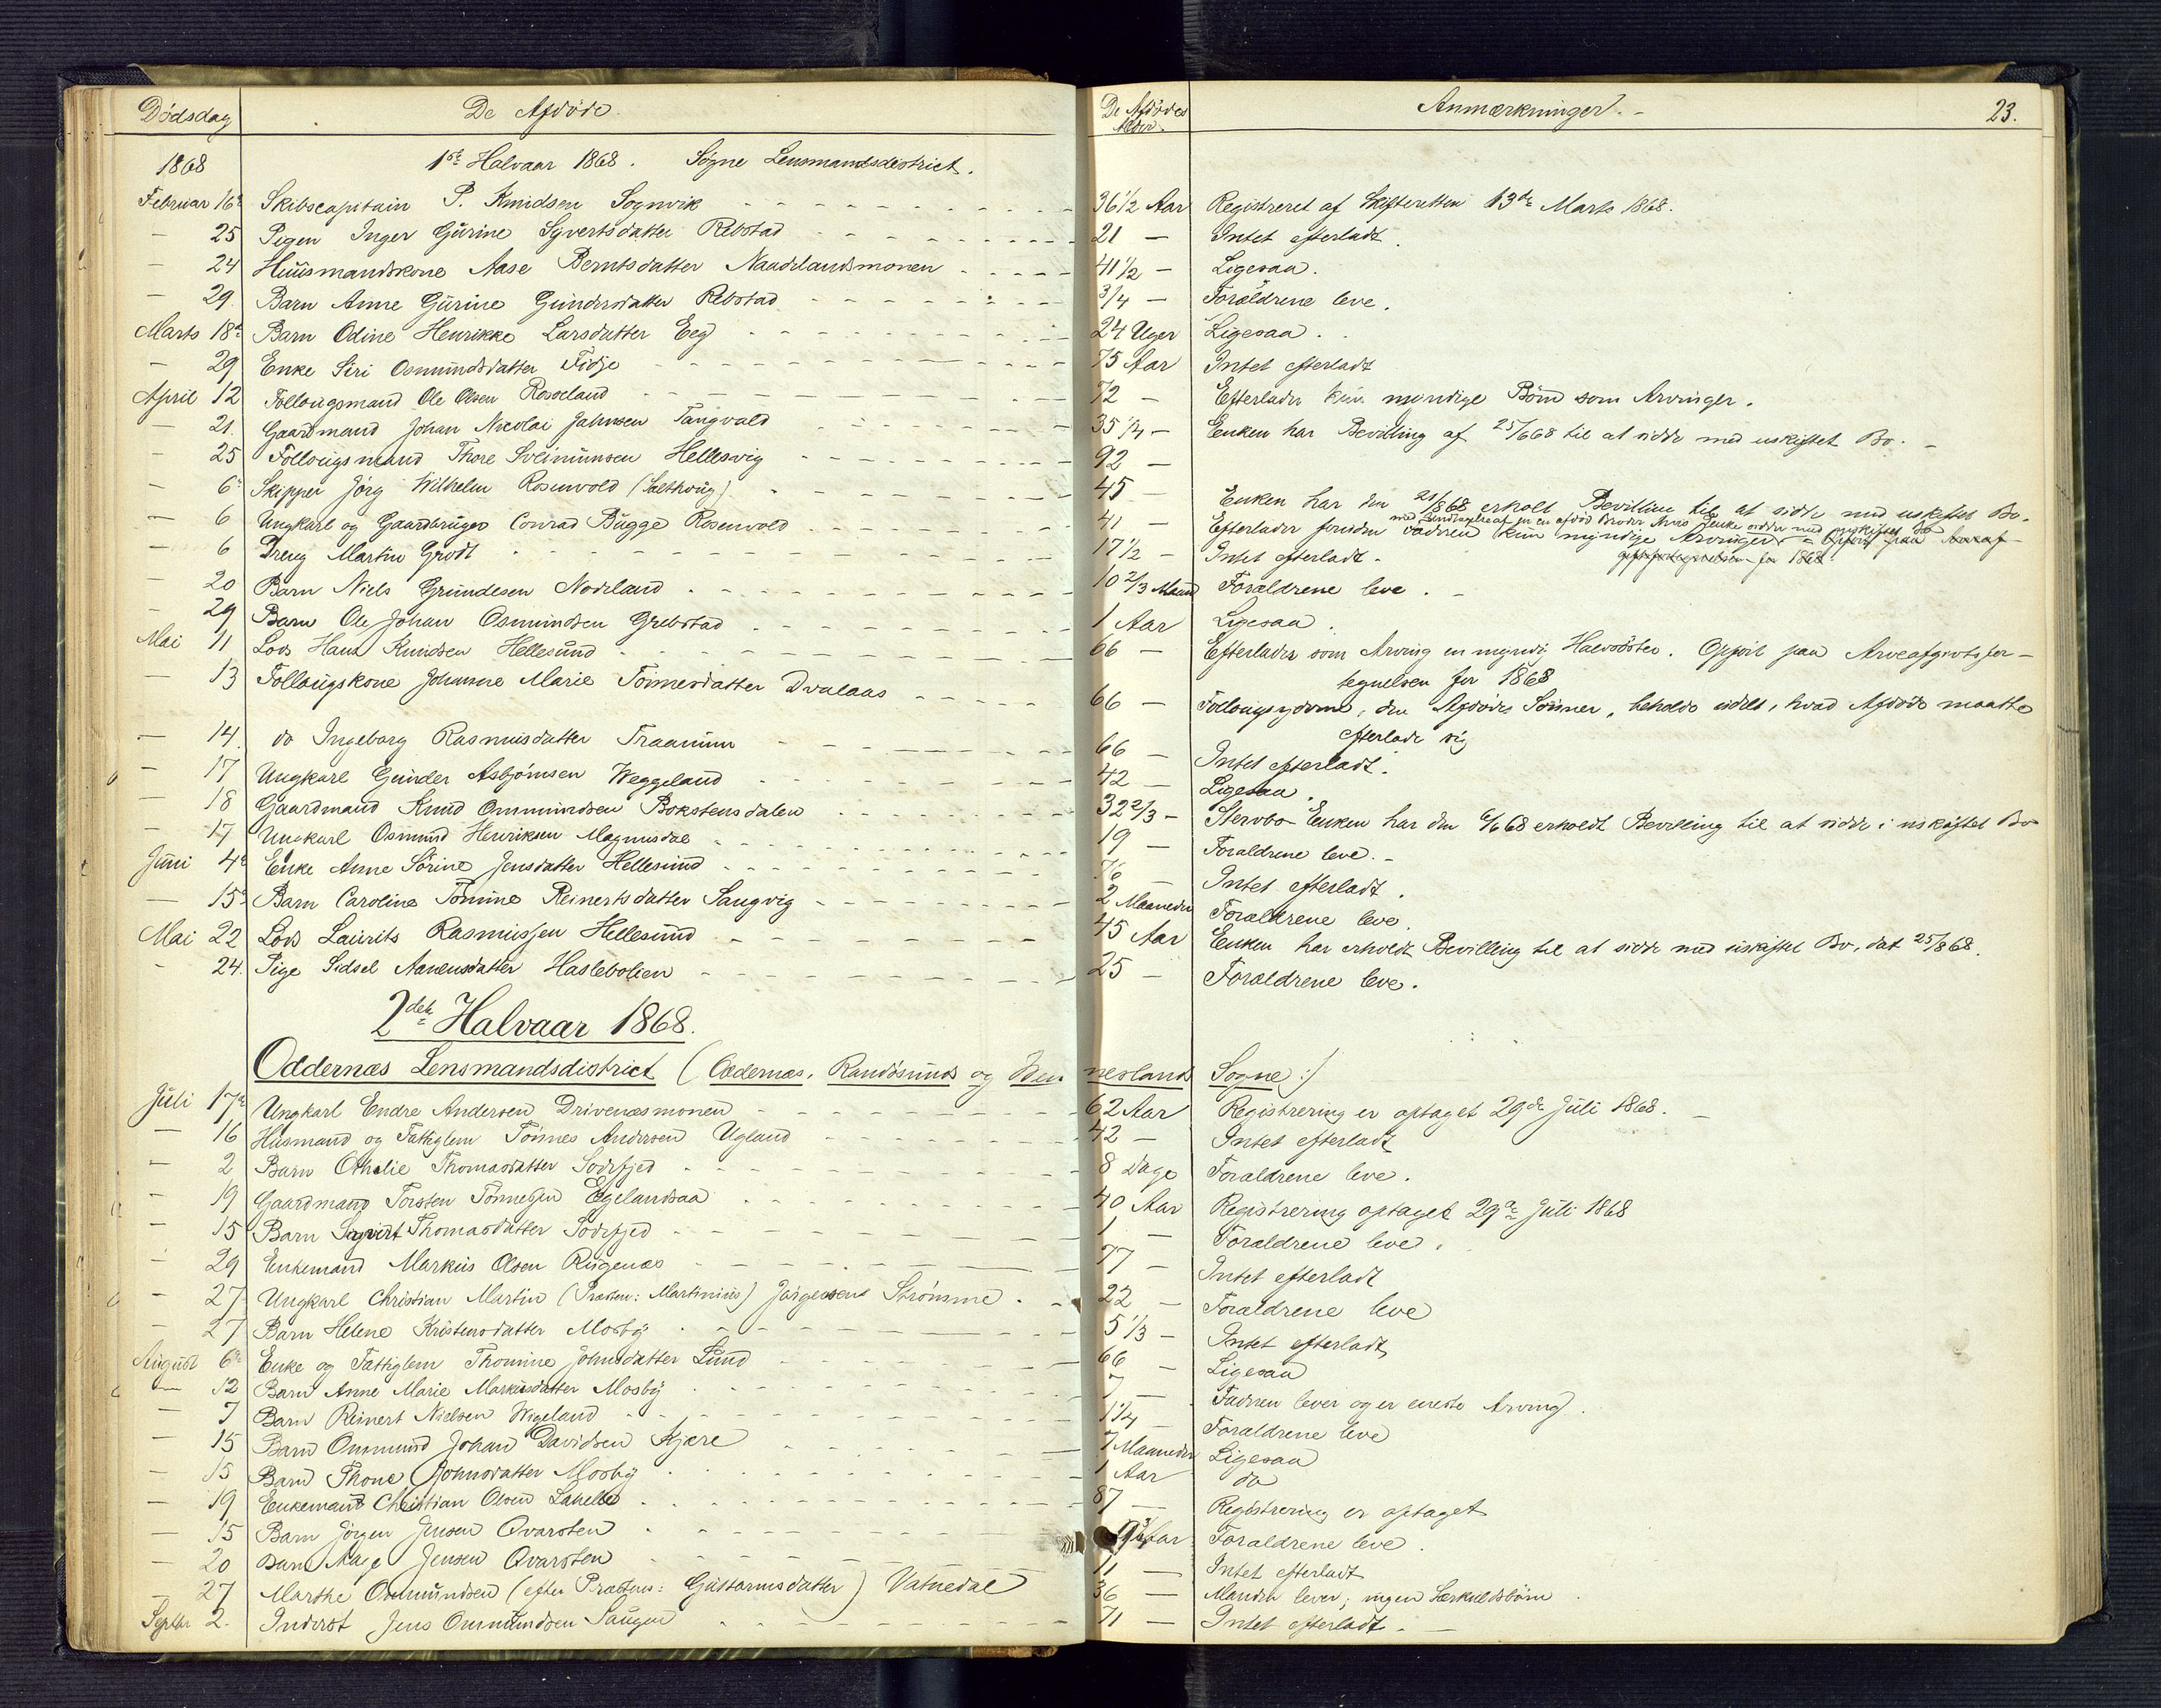 Dödsdag De Afdöde De Afdödes Alder. Anmærkninger. 23.
1868 1ste Halvaar 1868. Søgne Lensmandsdistrict.
Februar 16de Skibscapitain P. Knudsen Sognvik 36 1/2 Aar Registreret af Skifteretten 13de Marts 1868.
— 25 Pigen Inger Gurine Syvertsdatter Rebstad 21 — Intet efterladt.
— 24 Huusmandskone Aase Berntsdatter Naadelandsmonen 41 1/2 — Ligesaa.
— 29 Barn Anne Gurine Gundersdatter Rebstad 3/4 — Forældrene leve.
Marts 18de Barn Odine Henrikke Larsdatter Eeg 24 Uger Ligesaa.
— 29 Enke Siri Osmundsdatter Fidje 75 Aar Intet efterladt
April 12 Follougsmand Ole Olsen Rosseland 72 — Efterlader kun myndige Børn som Arvinger.
— 21. Gaardmand Johan Nicolai Jahnsen Tangvald 35 1/4 — Enken har Bevilling af 25/6 68 til at sidde med uskiftet Bo. —
— 25 Follougsmand Thore Sveinunsen Hellesvig 92 —
— 6te Skipper Jørg Wilhelm Rosenvold (Salthoug) 45 — Enken har den 21/8 68 erholdt Bevilling til at sidde med uskiftet Bo.
— 6 Ungkarl og Gaardbruger Conrad Bugge Rosenvold 41 — Efterlader foruden kun myndige Arvinger
— 6 Dreng Martin Grodt 17 1/2 — Intet efterladt. for 1868
— 20 Barn Niels Grundesen Nodeland 10 2/3 Maaned Forældrene leve. —
— 29 Barn Ole Johan Osmundsen Grebstad 1 Aar Ligesaa.
Mai 11 Lods Hans Knudsen Hellesund 66 — Efterlader som Arving en myndig Halvsøster. Opført paa Arveafgivtsfor-
tegnelsen for 1868
— 13 Follougskone Johanne Marie Tønnesdatter Dvalaas 66 — Follougsyderne, den Afdødes Sønner, beholde uddelt, hvad Afdøde maatte
efterlade sig
— 14. do Ingeborg Rasmusdatter Traanum 66 — Intet efterladt.
— 17 Ungkarl Gunder Asbjørnsen Weggeland 42 — Ligesaa.
— 18 Gaardmand Knud Ommundsen Bokstensdalen 32 2/3 — Stervbo Enken har den 6/6 68 erholdt Bevilling til at sidde i uskiftet Bo
— 17 Ungkarl Osmund Henriksen Magnusdal 19 — Forældrene leve. —
Juni 4de Enke Anne Sørine Jensdatter Hellesund 76 — Intet efterladt.
— 15de Barn Caroline Tomine Reinertsdatter Langvig 2 Maaneder Forældrene leve.
Mai 22 Lods Laurits Rasmussen Hellesund 45 Aar Enken har erholdt Bevilling til at sidde med uskiftet Bo, dat 25/8 68.
24. Pige Sidsel Aanensdatter Haslebolien 25 — Forældrene leve.
2det Halvaar 1868.
Oddernæs Lensmandsdistrict (Oddernæs, Randøsunds og Vennesland Sogne:)
Juli 17de Ungkarl Endre Andersen Drivenæsmonen 62 Aar Registrering er optaget 29de Juli 1868. —
— 16 Husmand og Fattiglem Tønnes Andersen Ugland 42 — Intet efterladt
— 2 Barn Othelie Thomasdatter Sodefjed 8 Dage Forældrene leve.
— 19 Gaardmand Torsten Tønnessen Egelandsaa 40 Aar Registrering optaget 29de Juli 1868
— 15 Barn Sigvert Thomasdatter Sodefjed 1 — Forældrene leve.
— 29 Enkemand Markus Olsen Rugenæs 77 — Intet efterladt
— 27 Ungkarl Christian Martin (Præsten: Martinius) Jørgensens Strømme 22 — Forældrene leve
— 27 Barn Helene Kristensdatter Mosby 5 1/3 — Intet efterladt
August 6te Enke og Fattiglem Thomine Johnsdatter Lund 66 — Ligesaa
— 12 Barn Anne Marie Markusdatter Mosby 7 — Fadren lever og er eneste Arving.
— 7 Barn Reinert Nielsen Wigeland 1 1/4 — Forældrene leve
— 15 Barn Ommund Johan Davidsen Kjære 7 Maaneder Ligesaa
— 15 Barn Thone Johnsdatter Mosby 1 Aar do
— 19 Enkemand Christian Olsen Lahelle 87 — Registrering er optaget
— 15 Barn Jörgen Jensen Qvarsten Aar Forældrene leve.
— 20 Barn Aage Jensen Qvarsten 11 — Intet efterladt
— 27 Marthe Ommundsen (efter Præsten: Guttormsdatter) Vatnedal 36 — Manden lever; ingen Særkuldsbørn
Septbr 2. Inderst Jens Ommundsen Haugen 71 — Intet efterladt. —